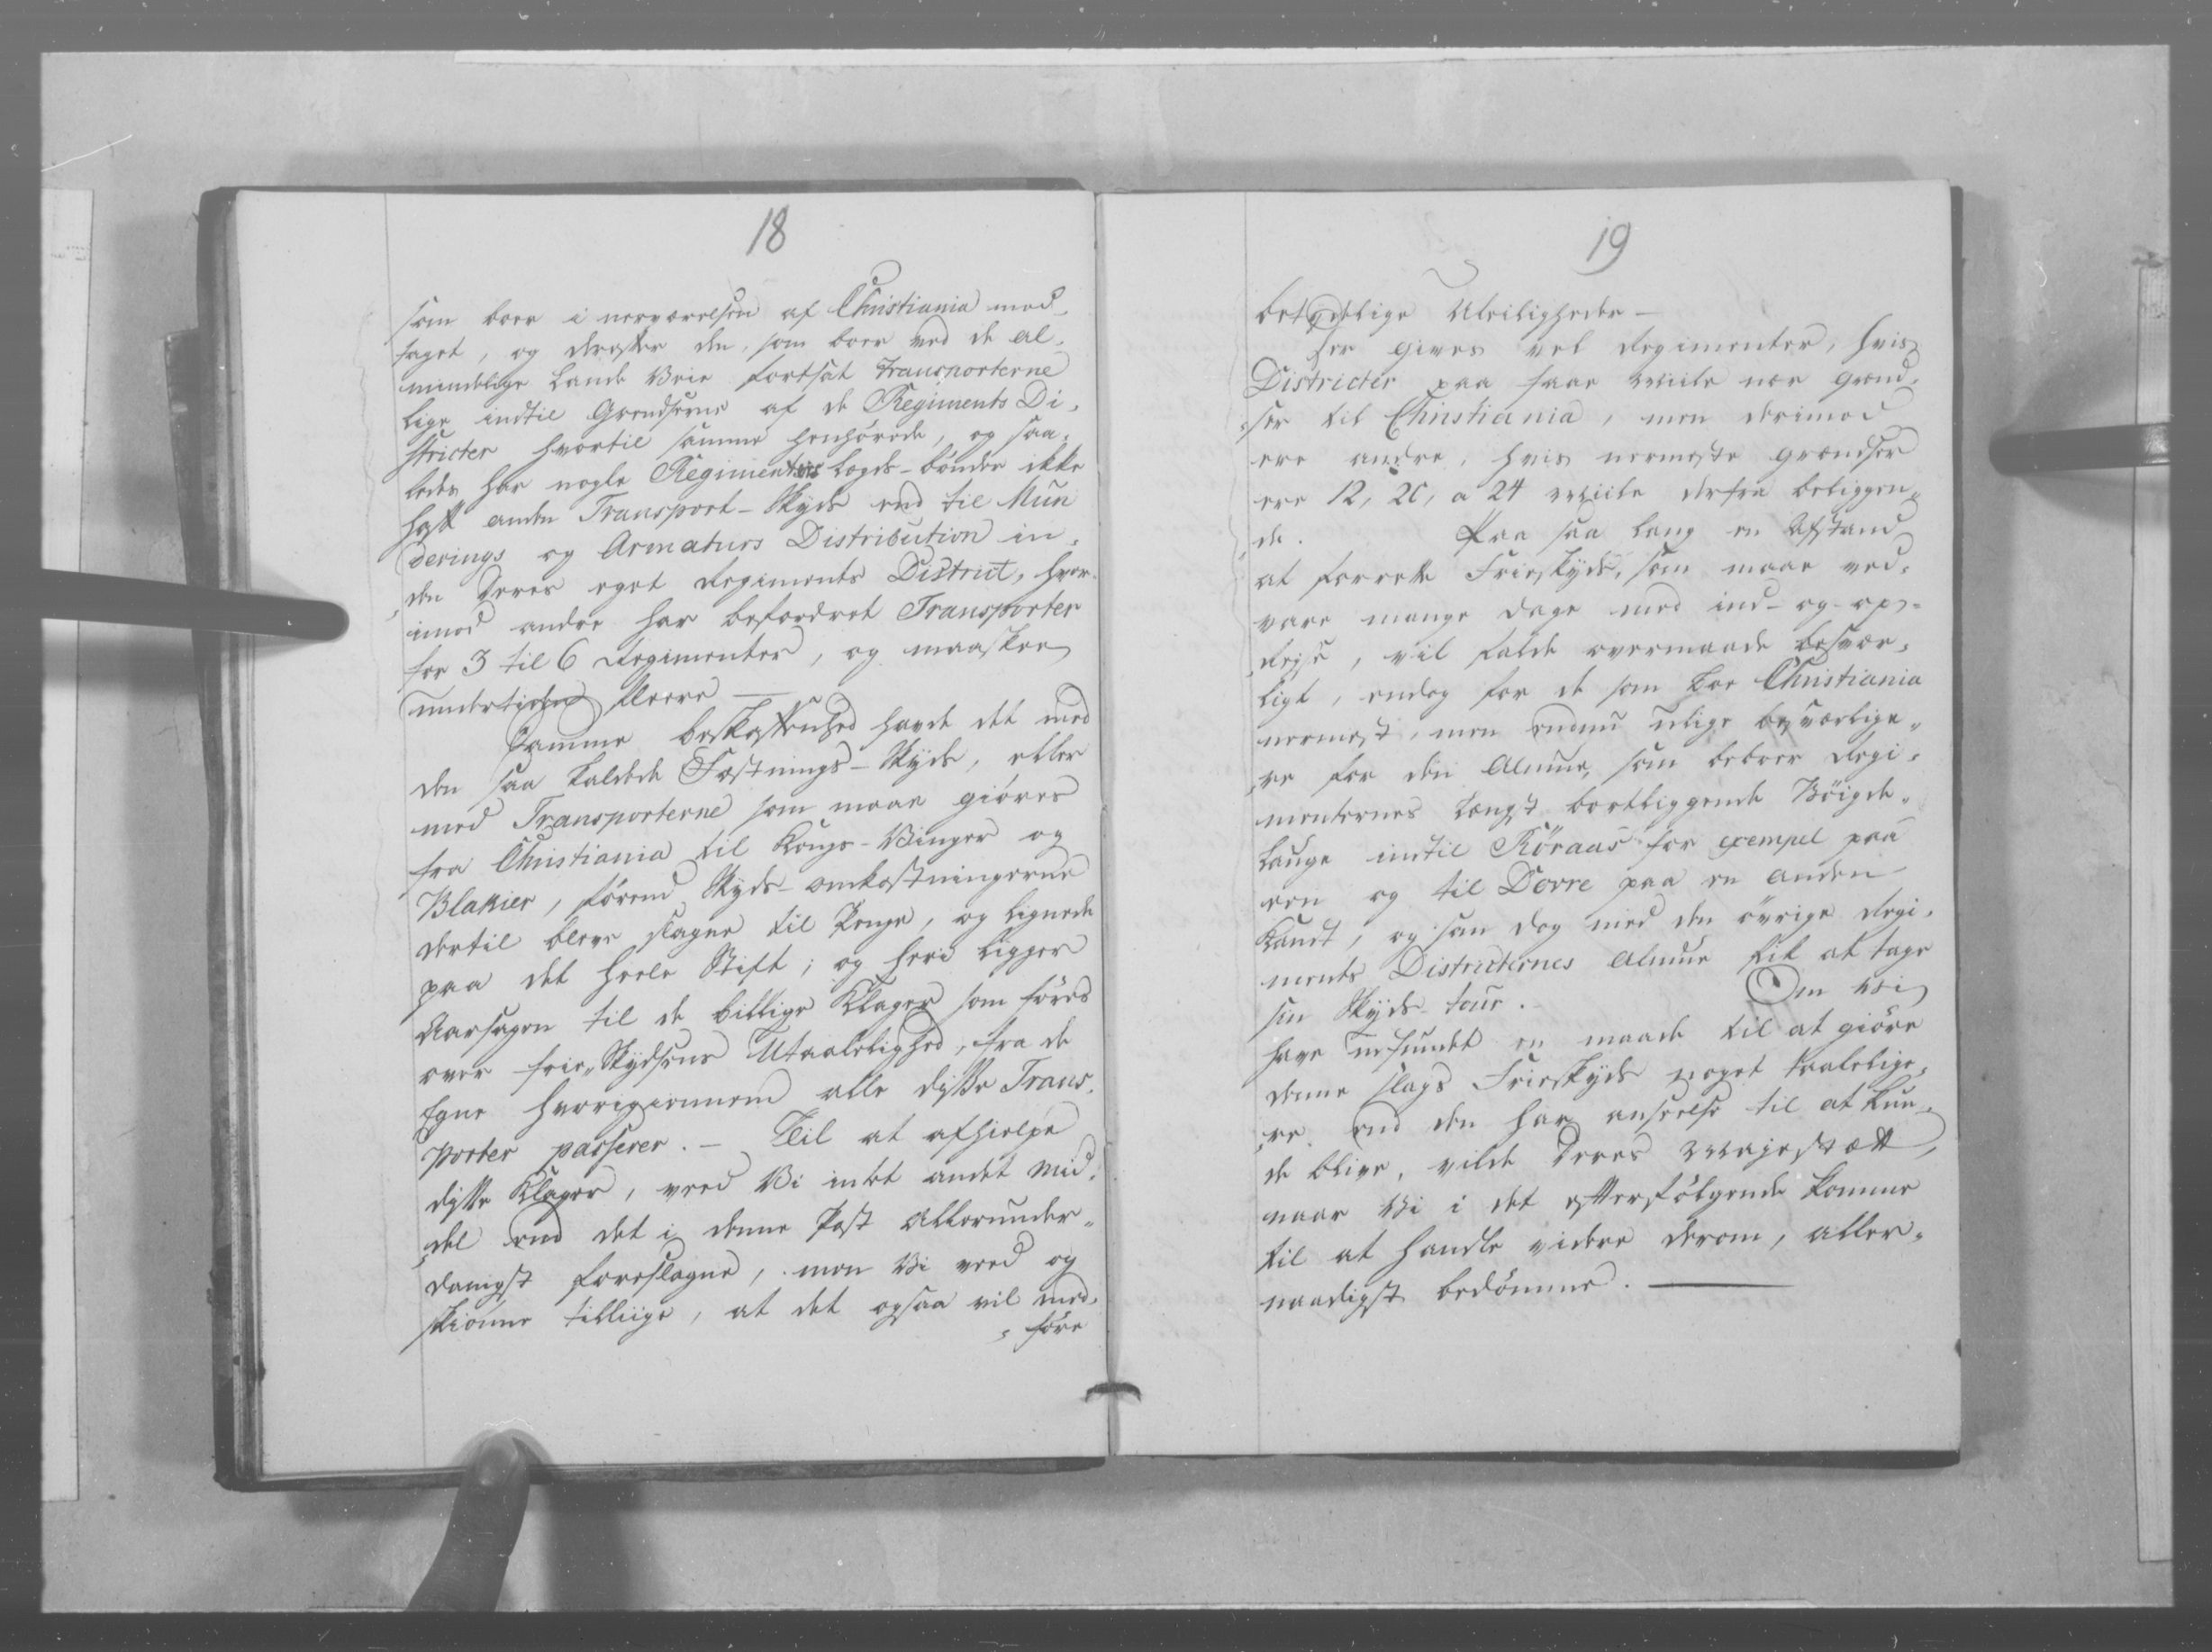 18
som boer i nærværelsen af Christiania med-
taget, og derefter den, som boer ved de al-
mindelige Lande Veie fortsat Transporterne
lige indtil Grændserne af de Regiments Di-
stricter hvortil samme henhørede, og saa-
ledes har nogle Regimenters Lægds-bønder ikke
haft anden Transport-Skyds end til Mun
derings og Armaturs Distribution in-
den Deres eget Regiments District, hvor-
imod andre har befordret Transporter
for 3 til 6 Regimenter, og maaskee
undertiden fleere —
Samme beskaffenhed havde det med
den saa kaldede Fæstnings-Skyds, eller
med Transporterne som maae giøres
fra Christiania til Kongs-Vinger og
Blakier, førend Skyds-omkostningerne
dertil bleve slagne til Penge, og lignede
paa det heele Stift; og heri ligger
Aarsagen til de billige Klager som føres
over frie-Skydsens Utaalelighed, fra de
Egne hvorigiennem alle disse Trans-
porter passerer. — Til at afhielpe
disse Klager, veed Vi intet andet Mid-
del end det i denne Post allerunder-
danigst foreslagne, men Vi veed og
skiønne tilliige, at det ogsaa vil med-
føre
19
betydelige Uleiligheder —
Her gives vel Regimenter, hvis
Districter paa faae Miile nær grænd-
ser til Christiania, men derimod
ere andre, hvis nærmeste grændser
ere 12, 20, a 24 Miile derfra beliggen-
de. Paa saa lang en Afstand
at forrette Frieskyds, som maae ved-
vare mange Dage med ind- og op-
Rejse, vil falde overmaade besvær-
ligt, endog for de som boe Christiania
nærmest, men endnu ulige besværlige-
re for den Almue, som beboer Regi-
menternes længst bortliggende Bøigde-
lauge indtil Røraas for exempel paa
een og til Dovre paa en anden
Kandt, og som dog med den øvrige Regi-
ments Districternes Almue fik at tage
sin Skyds-tour. Om Vi
have udfundet en maade til at giøre
denne slags Frieskyds noget taalelige-
re end den har anseelse til at kun-
de blive, vilde Deres Majestætt,
naar Vi i det efterfølgende komme
til at handle videre derom, aller-
naadigst bedømme. —